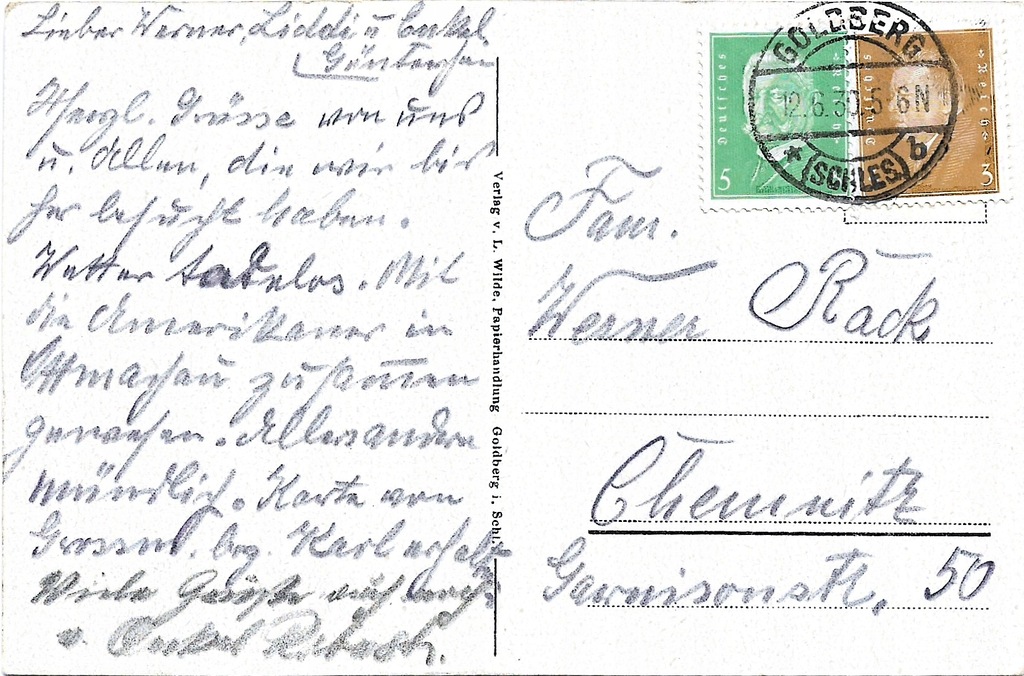 Lieber Werner, Liddi u Enkel
Günterchen
Herzl. Grüsse von uns
u. Allen, die wir bis
her besucht haben.
Wetter tadellos. Mit
die Amerikaner in
Ottmachau zusammen
gewesen. Alles andere
mündlich. Karte von
Grossm. bzg. Karl erhalt
Viele Grüße auch
v. Onkel
Verlag v. L. Wilde, Papierhandlung Goldberg i. Schl.
Deutsches Reich
5
Deutsches Reich
3
GOLDBERG
12.6.30.5-6N
* (SCHLES) b
Fam.
Werner Rack
Chemnitz
Garnisonstr. 50